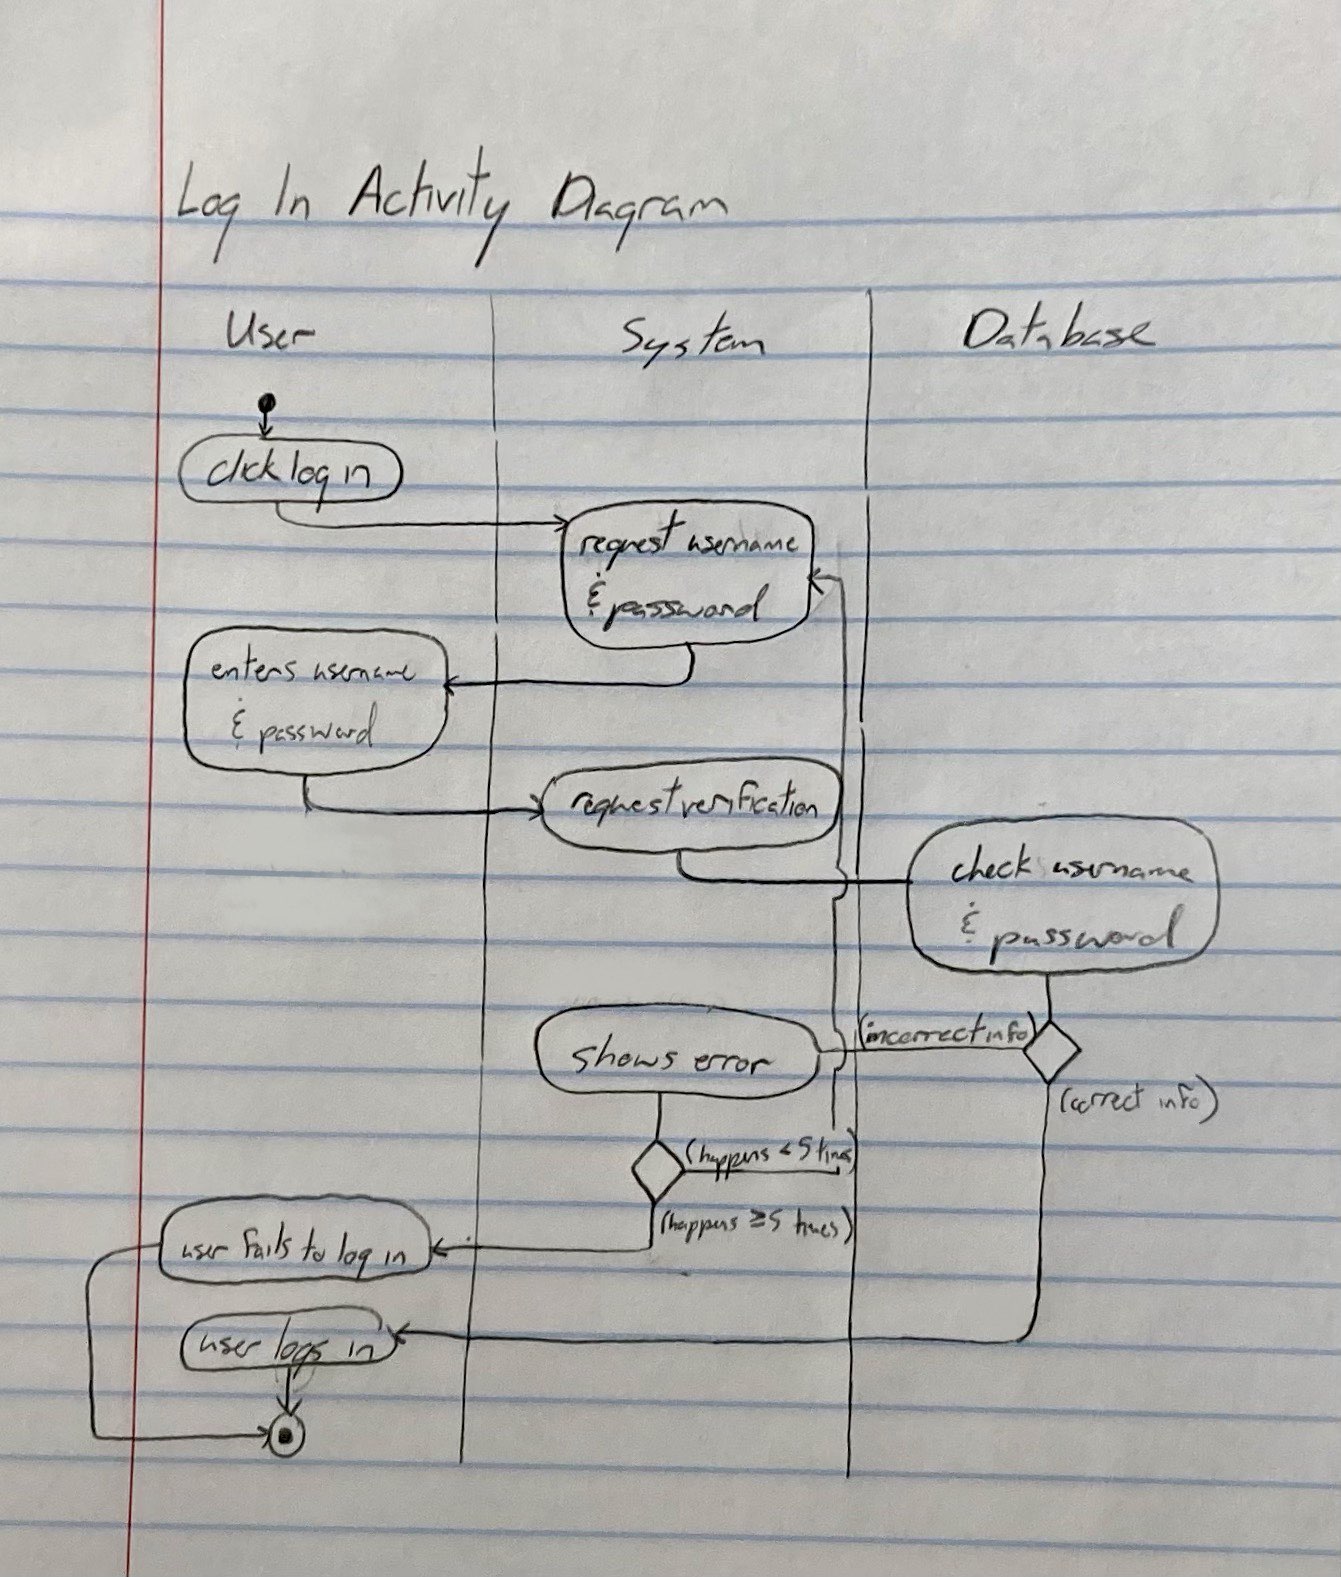 Log In Activity Diagram
User System Database
click log in
request username
& password
enters username
& password
request verification
check username
& password
(incorrect info)
shows error
(correct info)
(happens < 5 times)
(happens ≥ 5 times)
user fails to log in
user logs in